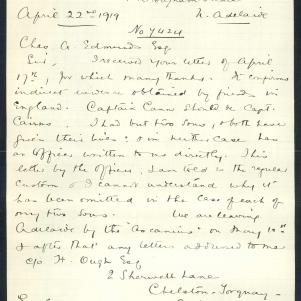 April 22nd 1919
N. Adelaide
No 7424
Chas A. Edmunds Esq
Sir, I received your letter of April
17th, for which many thanks. It confirms
indirect evidence obtained by friends in
England. Captain Cann should be Capt.
Cairns. I had but two sons, & both have
given their lives: & in neither case has
an Officer written to me directly. This
letter by the Officer, I am told is the regular
custom & I cannot understand why it
has been omitted in the case of each of
my two sons. We are leaving
Adelaide by the "Ascanius" on May 10th
& after that any letters addressed to me
c/o H. Ough Esq
2 Sherwell Lane
Chelston - Torquay -